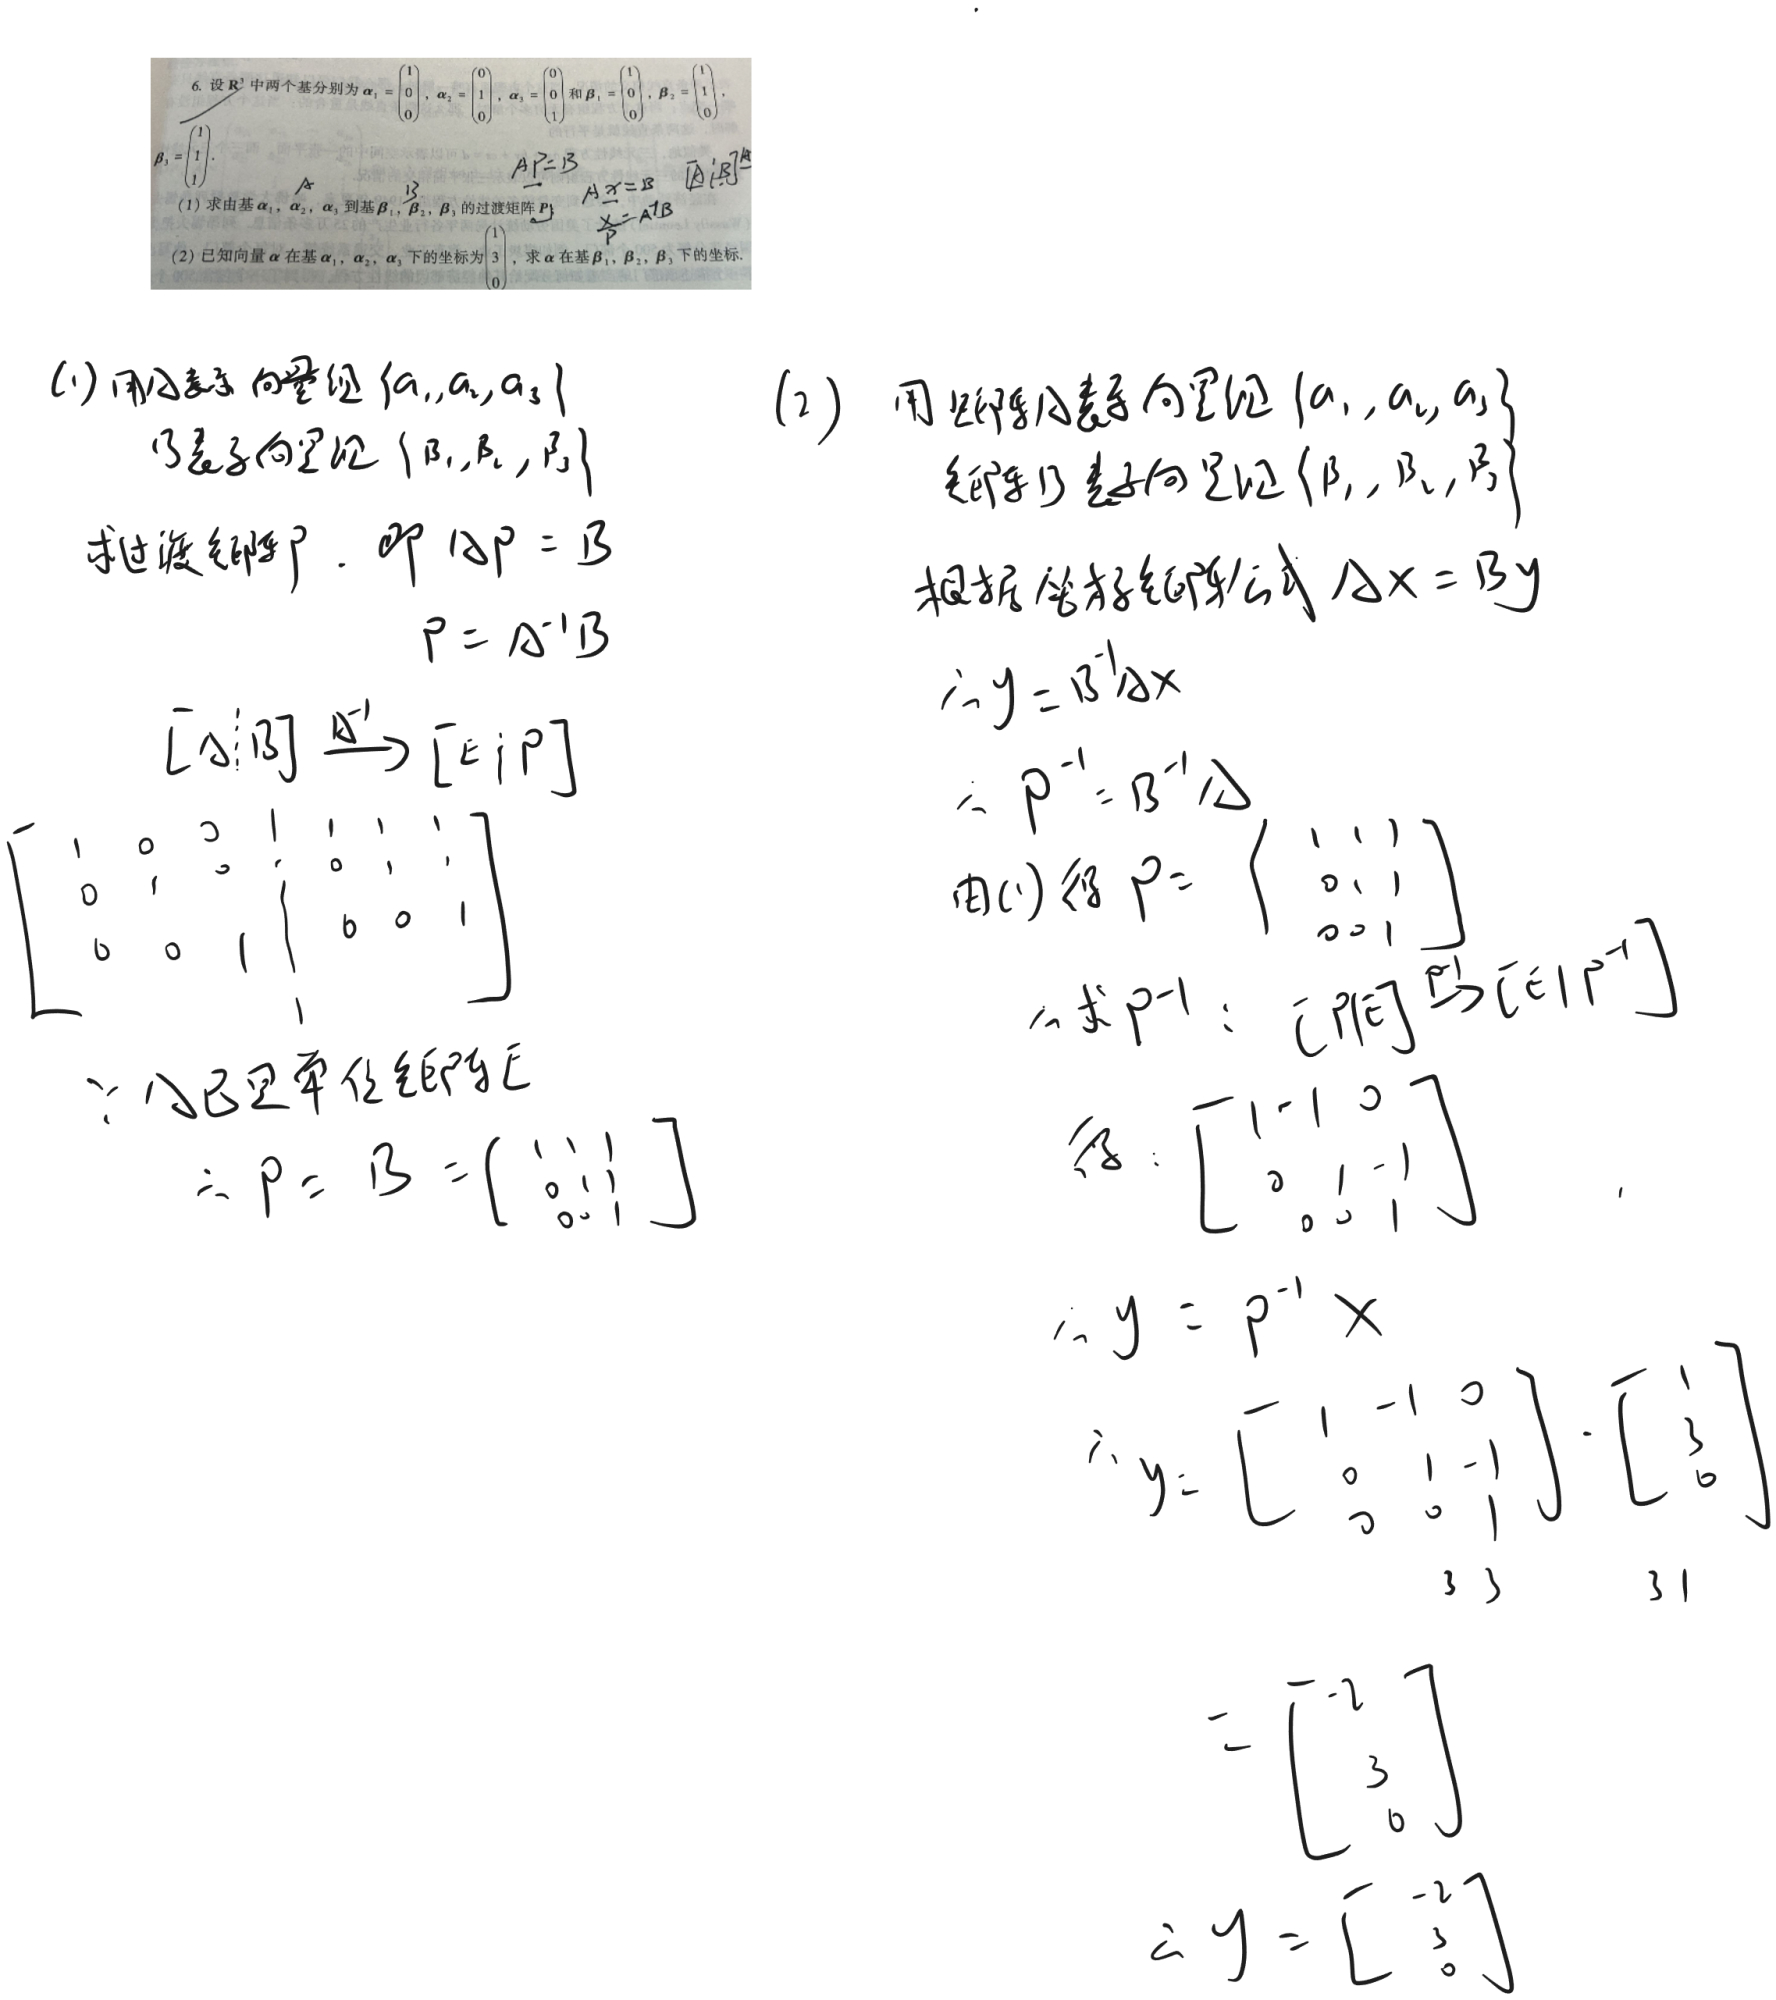 6. 设 R³ 中两个基分别为 α₁ = (1 0 0), α₂ = (0 1 0), α₃ = (0 0 1) 和 β₁ = (1 0 0), β₂ = (1 1 0),
β₃ = (1 1 1).
AP = B
Ax = B
[A ⋮ B]
A B
(1) 求由基 α₁, α₂, α₃ 到基 β₁, β₂, β₃ 的过渡矩阵 P;
x = A⁻¹B
P
(2) 已知向量 α 在基 α₁, α₂, α₃ 下的坐标为 (1 3 0), 求 α 在基 β₁, β₂, β₃ 下的坐标.
(1) 用A表示向量组 {a₁, a₂, a₃}
B表示向量组 {β₁, β₂, β₃}
求过渡矩阵P. 即 AP = B
P = A⁻¹B
[A ⋮ B] A⁻¹→ [E ¦ P]
1 0 0 | 1 1 1
0 1 0 | 0 1 1
0 0 1 | 0 0 1
∵ A已是单位矩阵E
∴ P = B = [1 1 1
0 1 1
0 0 1]
(2) 用矩阵A表示向量组 {a₁, a₂, a₃}
矩阵B表示向量组 {β₁, β₂, β₃}
根据坐标矩阵公式 Ax = By
∴ y = B⁻¹Ax
∴ P⁻¹ = B⁻¹A
由(1)得 P = [1 1 1
0 1 1
0 0 1]
∴ 求 P⁻¹: [P|E] P⁻¹→ [E|P⁻¹]
得: [1 -1 0
0 1 -1
0 0 1]
∴ y = P⁻¹ x
∴ y = [1 -1 0
0 1 -1
0 0 1] · [1
3
0]
3 3 3 1
= [-2
3
0]
∴ y = [-2
3
0]